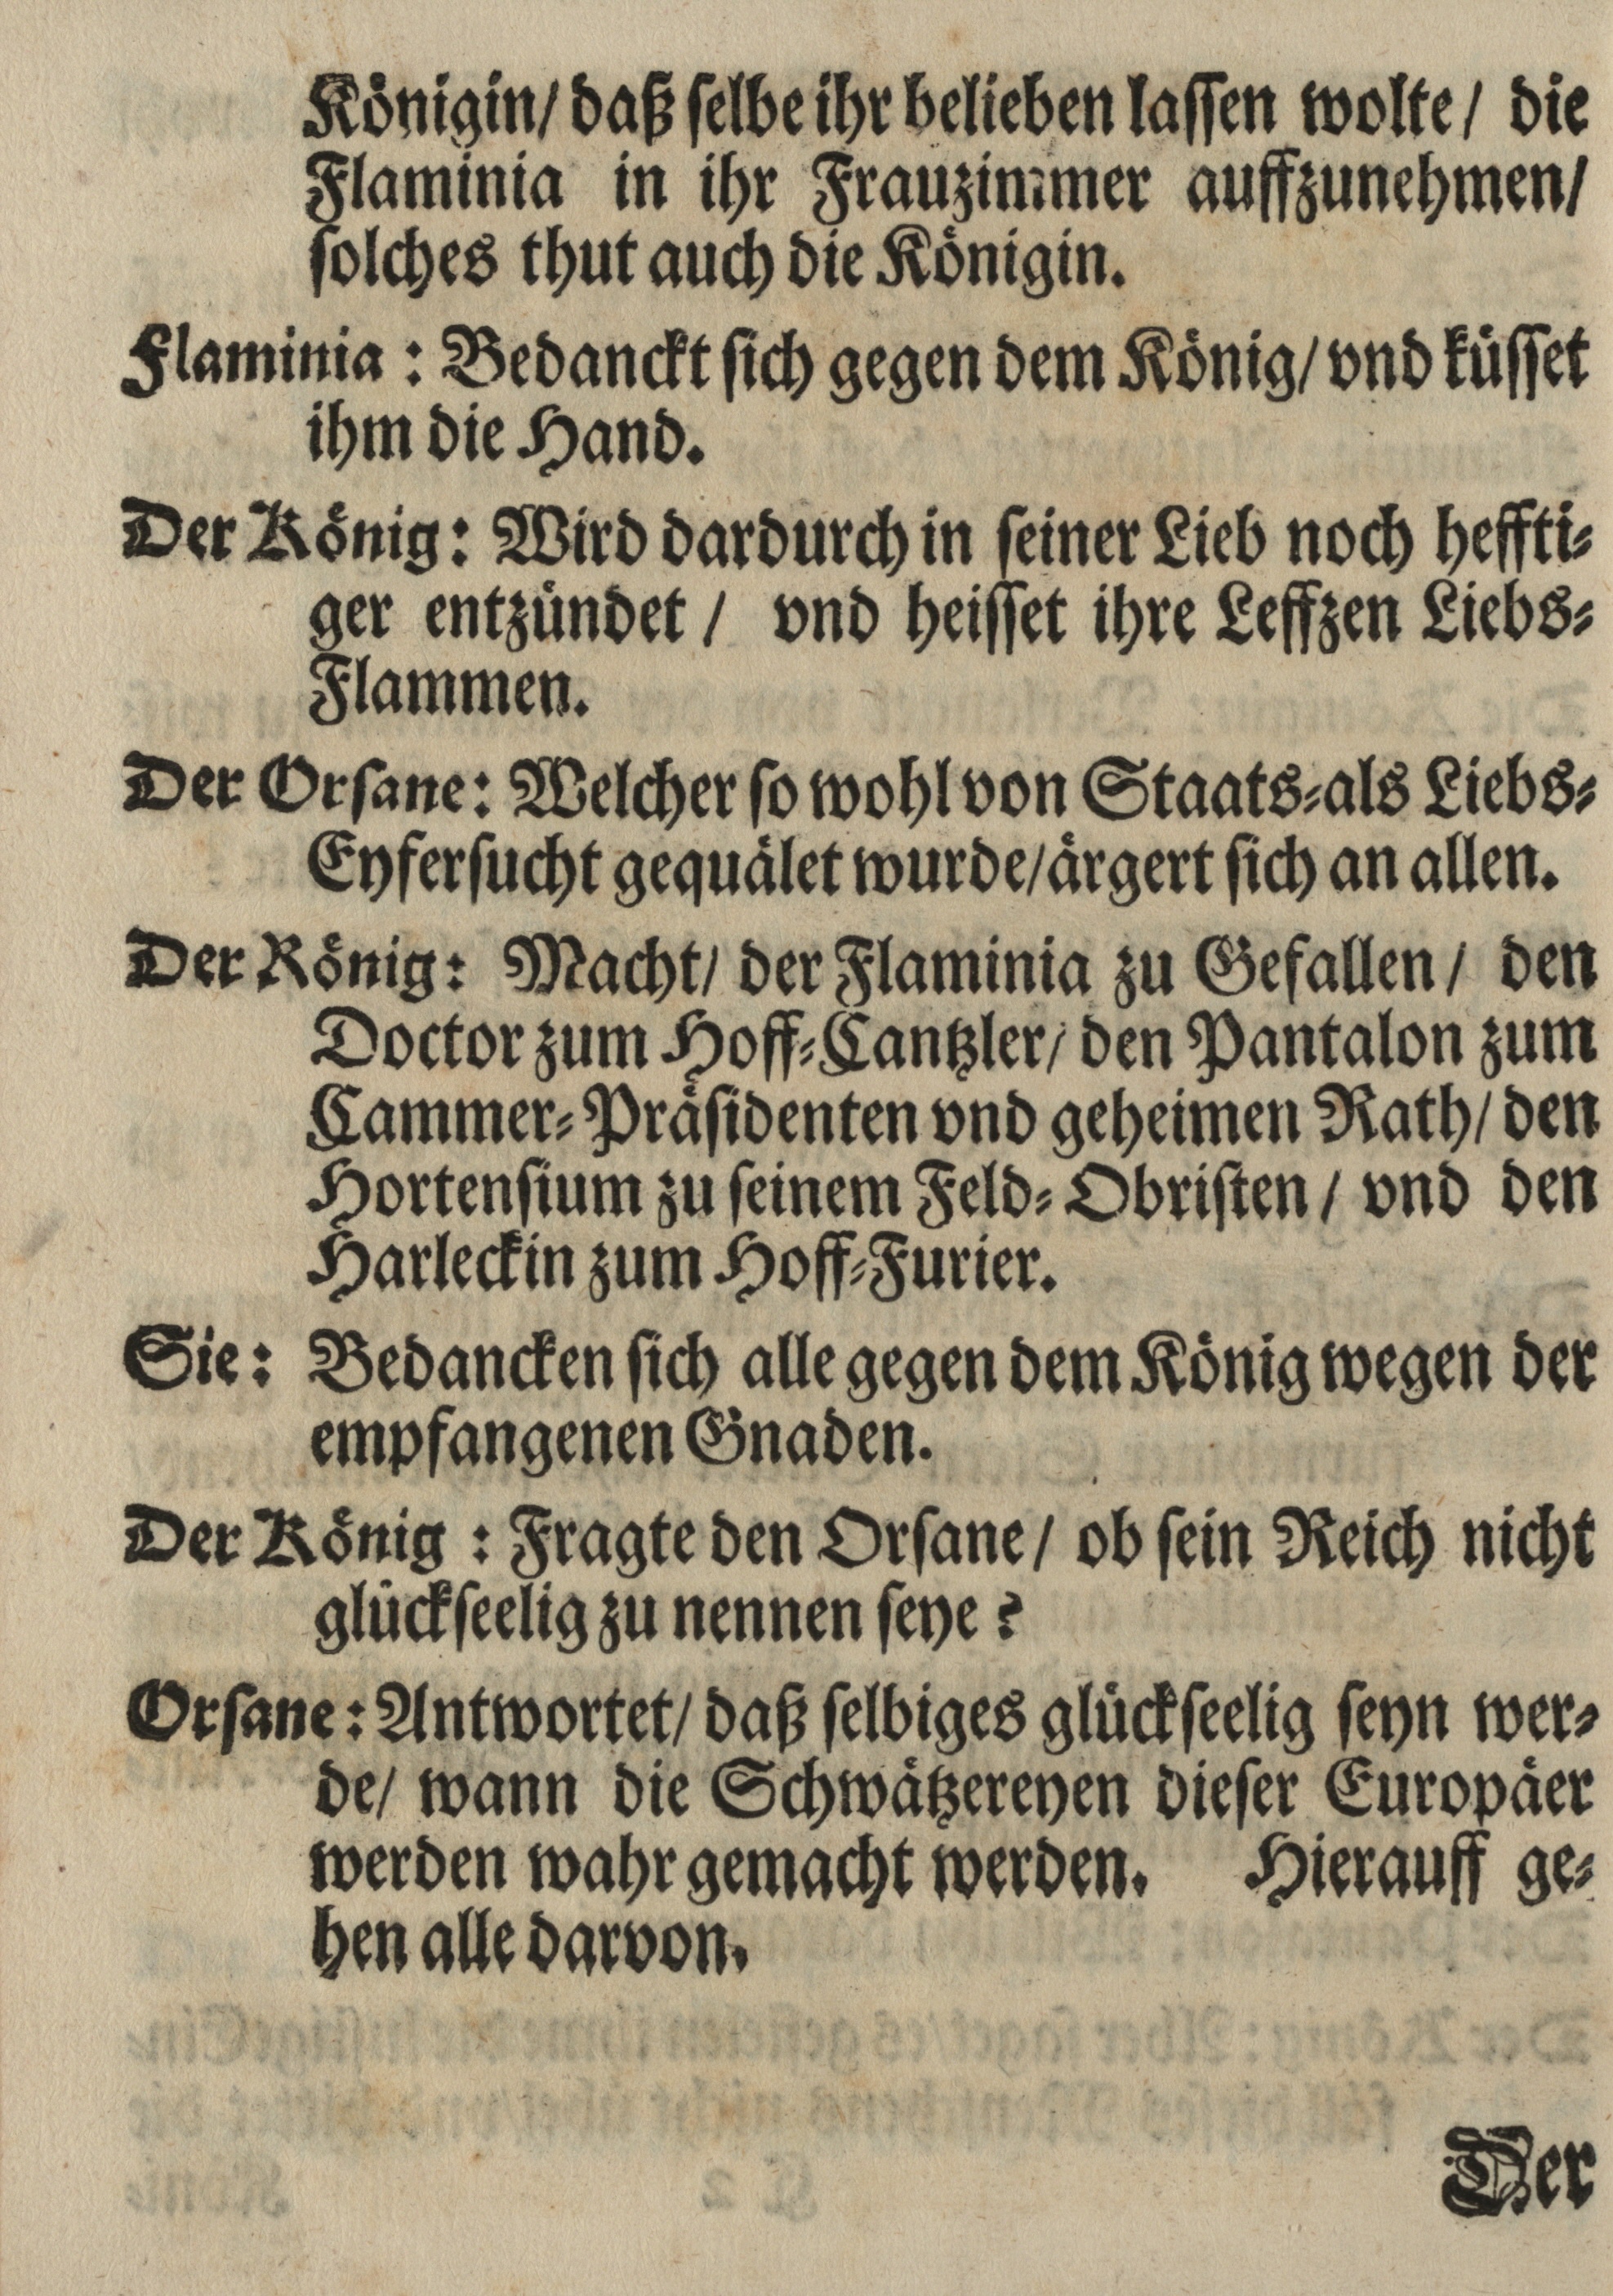 Königin/ daß selbe ihr belieben lassen wolte/ die
Flaminia in ihr Frauzimmer auffzunehmen/
solches thut auch die Königin.
Flaminia : Bedanckt sich gegen dem König/ vnd küsset
ihm die Hand.
Der König: Wird dardurch in seiner Lieb noch heffti-
ger entzündet / vnd heisset ihre Leffzen Liebs-
Flammen.
Der Orsane: Welcher so wohl von Staats-als Liebs-
Eyfersucht gequälet wurde/ärgert sich an allen.
Der König: Macht/ der Flaminia zu Gefallen / den
Doctor zum Hoff-Cantzler/ den Pantalon zum
Cammer-Präsidenten vnd geheimen Rath/ den
Hortensium zu seinem Feld-Obristen / vnd den
Harleckin zum Hoff-Furier.
Sie: Bedancken sich alle gegen dem König wegen der
empfangenen Gnaden.
Der König : Fragte den Orsane/ ob sein Reich nicht
glückseelig zu nennen seye ?
Orsane: Antwortet/ daß selbiges glückseelig seyn wer-
de/ wann die Schwätzereyen dieser Europäer
werden wahr gemacht werden. Hierauff ge-
hen alle darvon.
Der